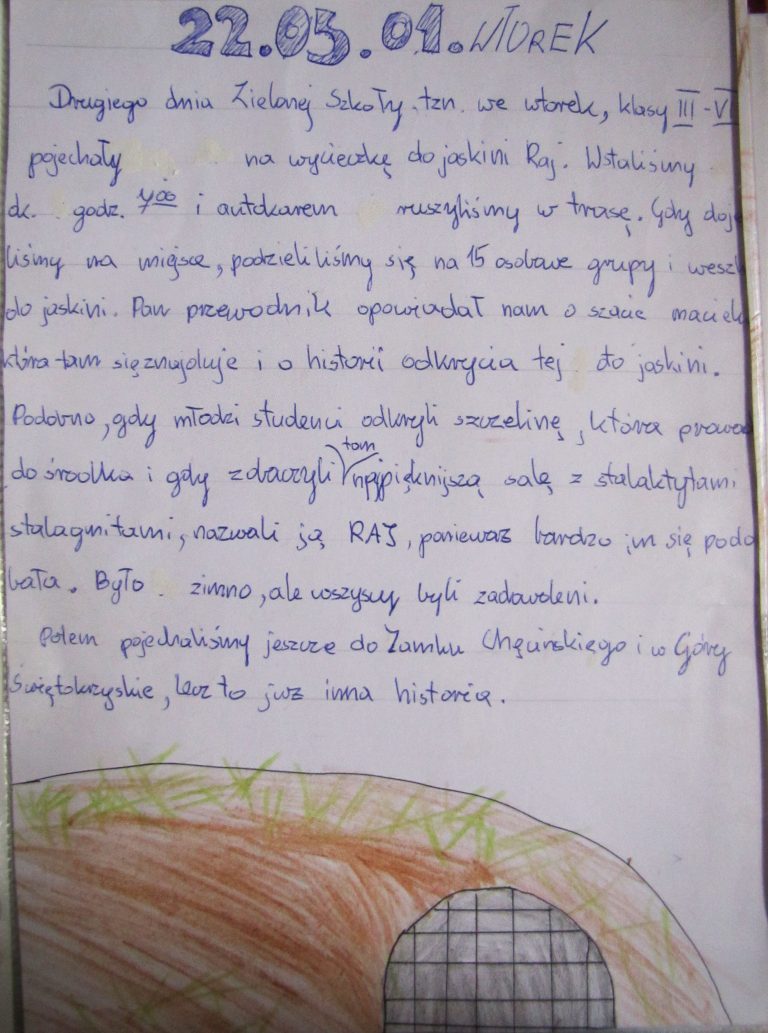 22.05.01. WTOREK
Drugiego dnia Zielonej Szkoły, tzn. we wtorek, klasy III-VI
pojechały na wycieczkę do jaskini Raj. Wstaliśmy
ok. godz. 7⁰⁰ i autokarem ruszyliśmy w trasę. Gdy doje
liśmy na miejsce, podzieliliśmy się na 15 osobowe grupy i wesz
do jaskini. Pan przewodnik opowiadał nam o szacie naciek
która tam się znajduje i o historii odkrycia tej do jaskini.
Podobno, gdy młodzi studenci odkryli szczelinę, która prowad
do środka i gdy zobaczyli tam najpiękniejszą salę z stalaktytami
stalagmitami, nazwali ją RAJ, ponieważ bardzo im się podo
bała. Było zimno, ale wszyscy byli zadowoleni.
Potem pojechaliśmy jeszcze do Zamku Chęcińskiego i w Góry
Świętokrzyskie, lecz to już inna historia.